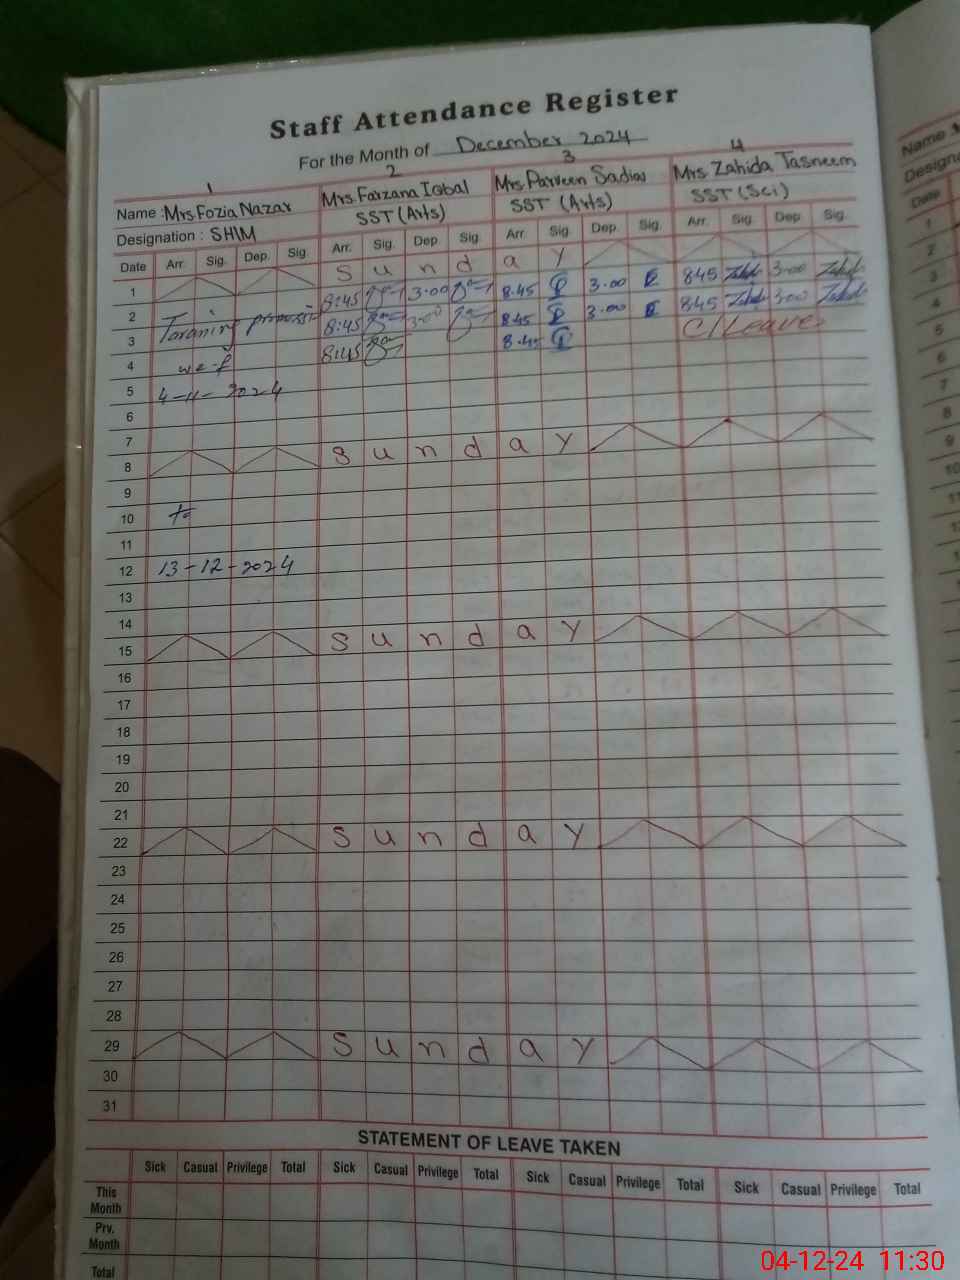 Staff Attendance Register
For the Month of December 2024
1 2 3 4
Name : Mrs Fozia Nazar Mrs Farzana Iqbal Mrs Parveen Sadiq Mrs Zahida Tasneem
Designation : SHIM SST (Arts) SST (Arts) SST (Sci)
Date Arr. Sig. Dep. Sig. Arr. Sig. Dep Sig. Arr. Sig. Dep. Sig. Arr. Sig. Dep Sig.
1 Sunday
2 8:45 3:00 8.45 3.00 845 3:00
3 8:45 3:00 8.45 3.00 845 3:00
4 w e f 8:45 8.45 C/Leave
5 4-11-2024
6
7
8 Sunday
9
10 to
11
12 13-12-2024
13
14
15 Sunday
16
17
18
19
20
21
22 Sunday
23
24
25
26
27
28
29 Sunday
30
31
STATEMENT OF LEAVE TAKEN
Sick Casual Privilege Total Sick Casual Privilege Total Sick Casual Privilege Total Sick Casual Privilege Total
This Month
Prv. Month
Total
Name
Date
1
2
3
4
5
6
7
8
9
10
11
04-12-24 11:30